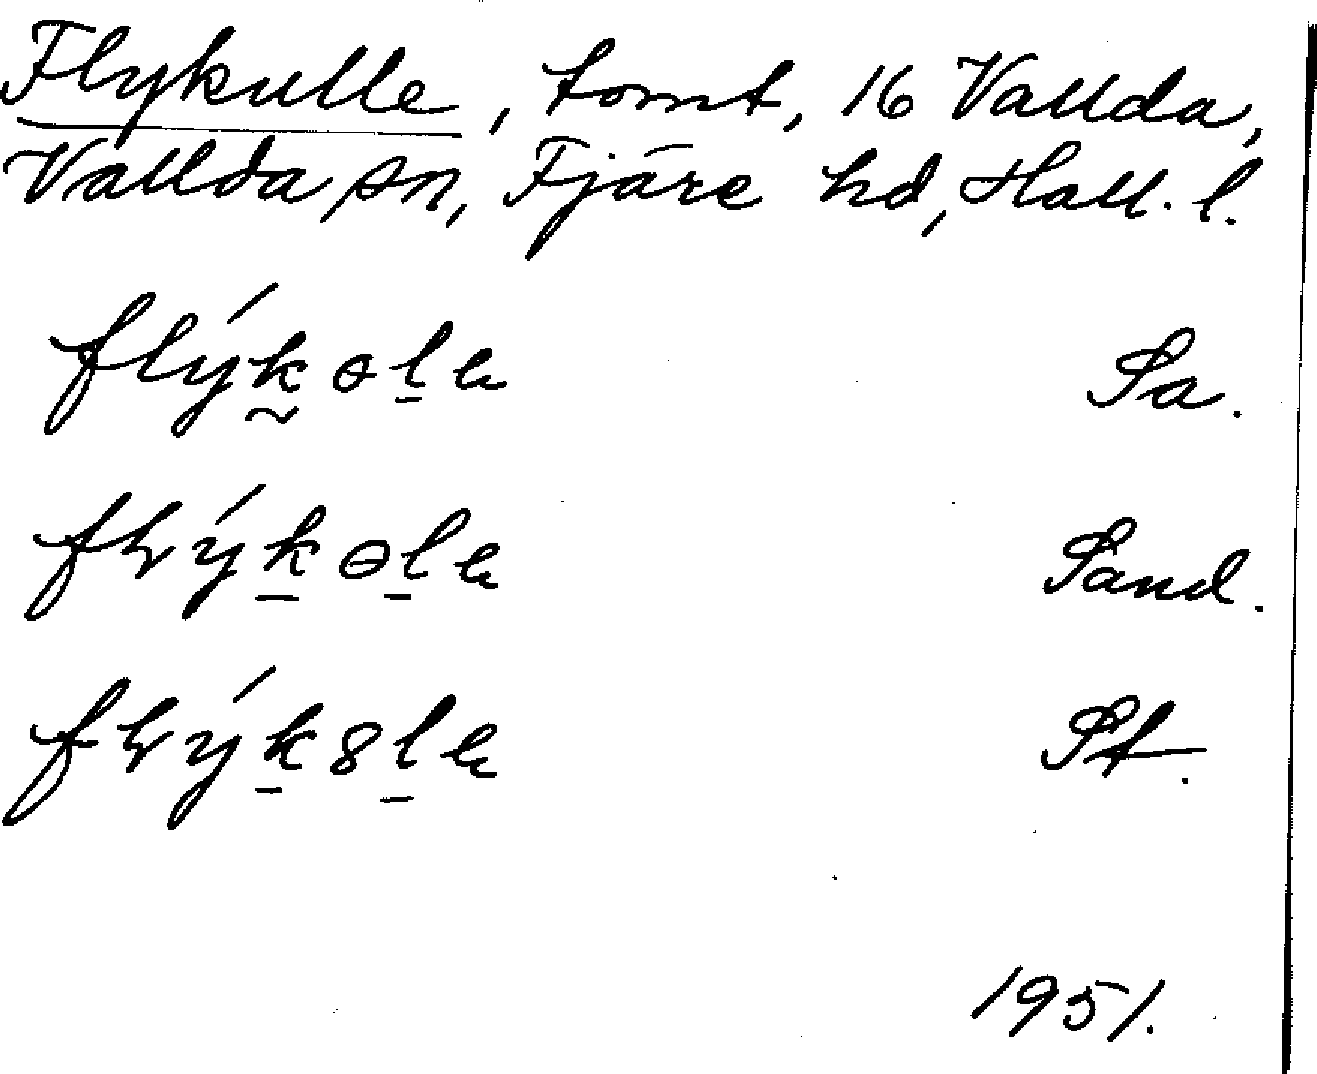 Flykulle, tomt, 16 Vallda,
Vallda sn, Fjäre hd, Hall. l.
flýkɵlɐ Sa.
fɽýkɵlɐ Sand.
fɽýk8lɐ St.
1951.